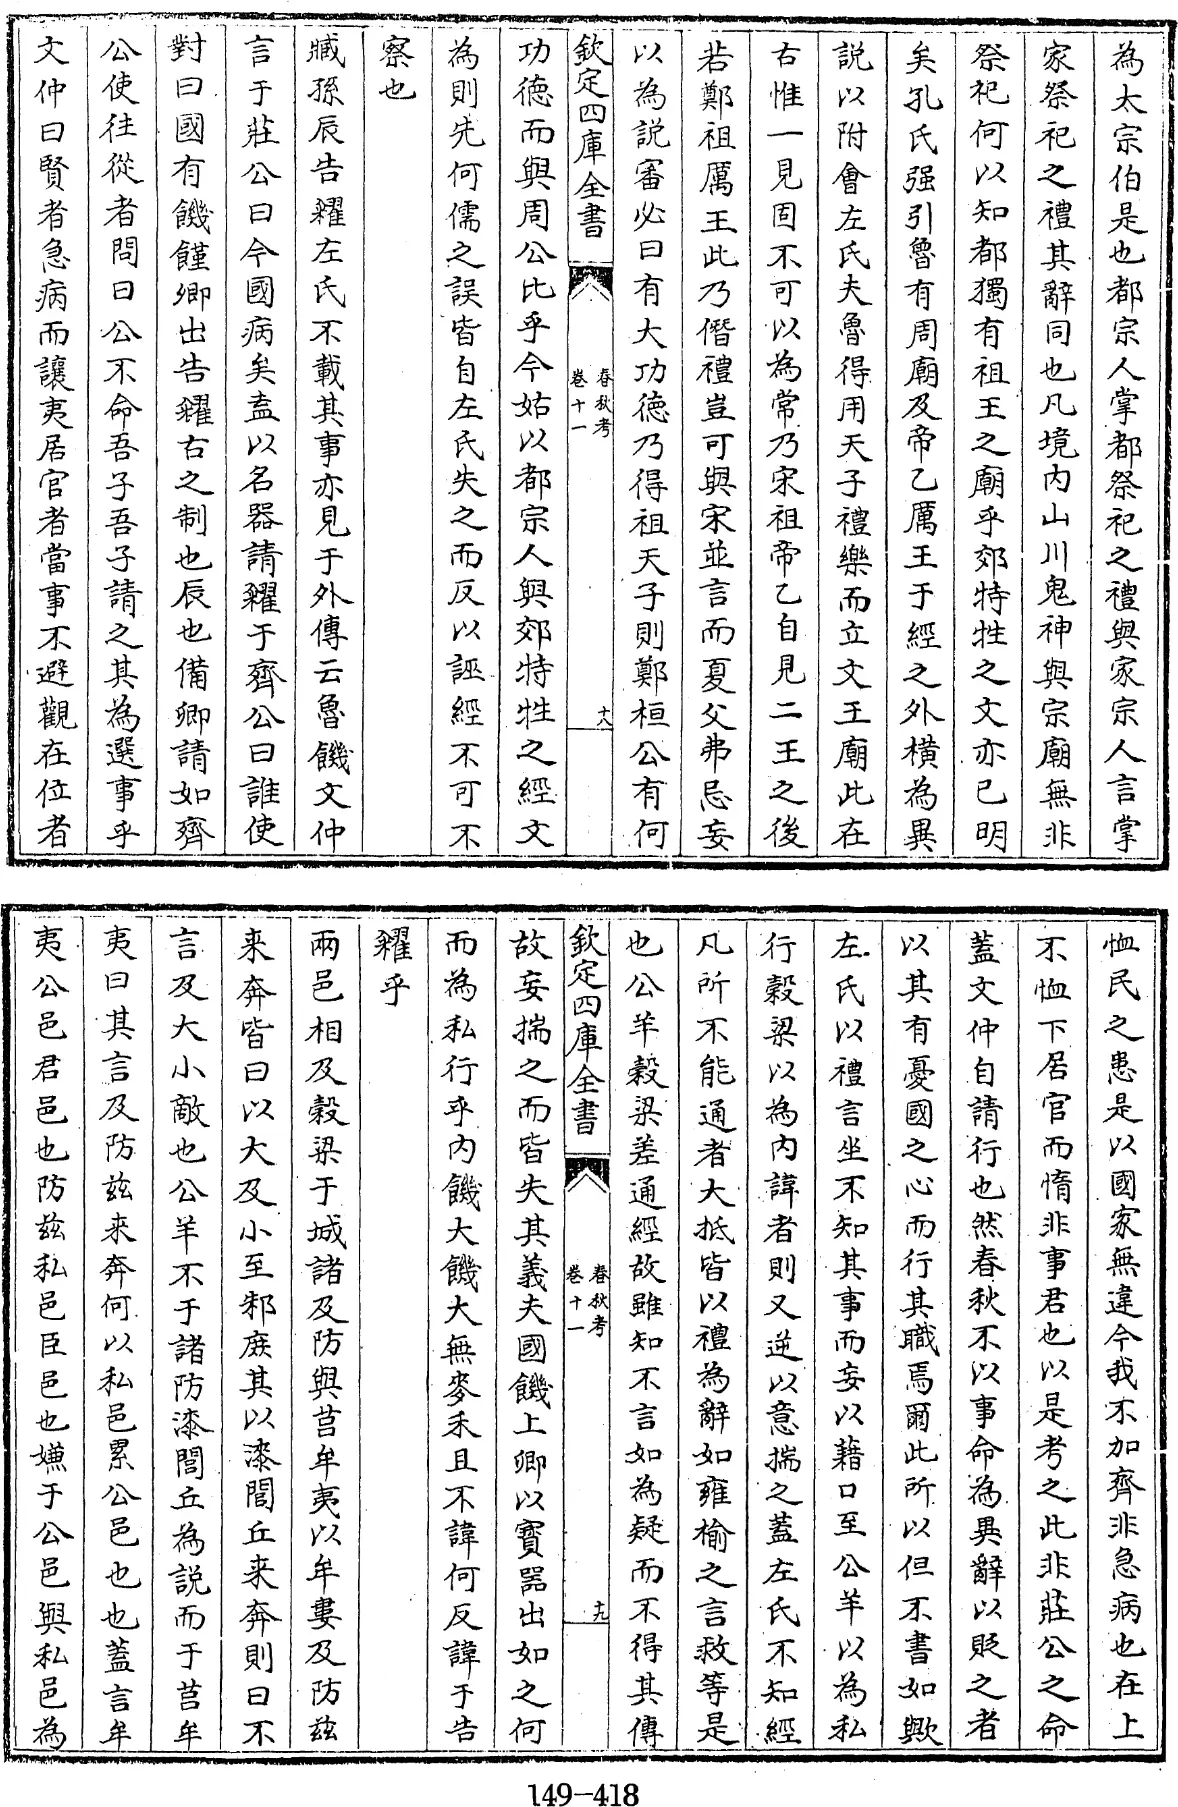 為太宗伯是也都宗人掌都祭祀之禮與家宗人言掌
家祭祀之禮其辭同也凡境内山川鬼神與宗廟無非
祭祀何以知都獨有祖王之廟乎郊特牲之文亦已明
矣孔氏强引魯有周廟及帝乙厲王于經之外横為異
説以附會左氏夫魯得用天子禮樂而立文王廟此在
右惟一見固不可以為常乃宋祖帝乙自見二王之後
若鄭祖厲王此乃僭禮豈可與宋並言而夏父弗忌妄
以為説審必曰有大功徳乃得祖天子則鄭桓公有何
欽定四庫全書
春秋考
卷十一
十八
功徳而與周公比乎今姑以都宗人與郊特牲之經文
為則先何儒之誤皆自左氏失之而反以誣經不可不
察也
臧孫辰告糴左氏不載其事亦見于外傳云魯饑文仲
言于莊公曰今國病矣盍以名器請糴于齊公曰誰使
對曰國有饑饉卿出告糴右之制也辰也備卿請如齊
公使往從者問曰公不命吾子吾子請之其為選事乎
文仲曰賢者急病而讓夷居官者當事不避觀在位者
恤民之患是以國家無違今我不加齊非急病也在上
不恤下居官而惰非事君也以是考之此非莊公之命
蓋文仲自請行也然春秋不以事命為異辭以貶之者
以其有憂國之心而行其職焉爾此所以但不書如歟
左氏以禮言坐不知其事而妄以藉口至公羊以為私
行穀梁以為内諱者則又逆以意揣之蓋左氏不知經
凡所不能通者大抵皆以禮為辭如雍榆之言救等是
也公羊穀梁差通經故雖知不言如為疑而不得其傳
欽定四庫全書
春秋考
卷十一
十九
故妄揣之而皆失其義夫國饑上卿以寳器出如之何
而為私行乎内饑大饑大無麥禾且不諱何反諱于告
糴乎
兩邑相及穀梁于城諸及防與莒牟夷以牟婁及防兹
来奔皆曰以大及小至邾庶其以漆閭丘来奔則曰不
言及大小敵也公羊不于諸防漆閭丘為説而于莒牟
夷曰其言及防兹来奔何以私邑累公邑也也蓋言牟
夷公邑君邑也防兹私邑臣邑也嫌于公邑與私邑為
149-418